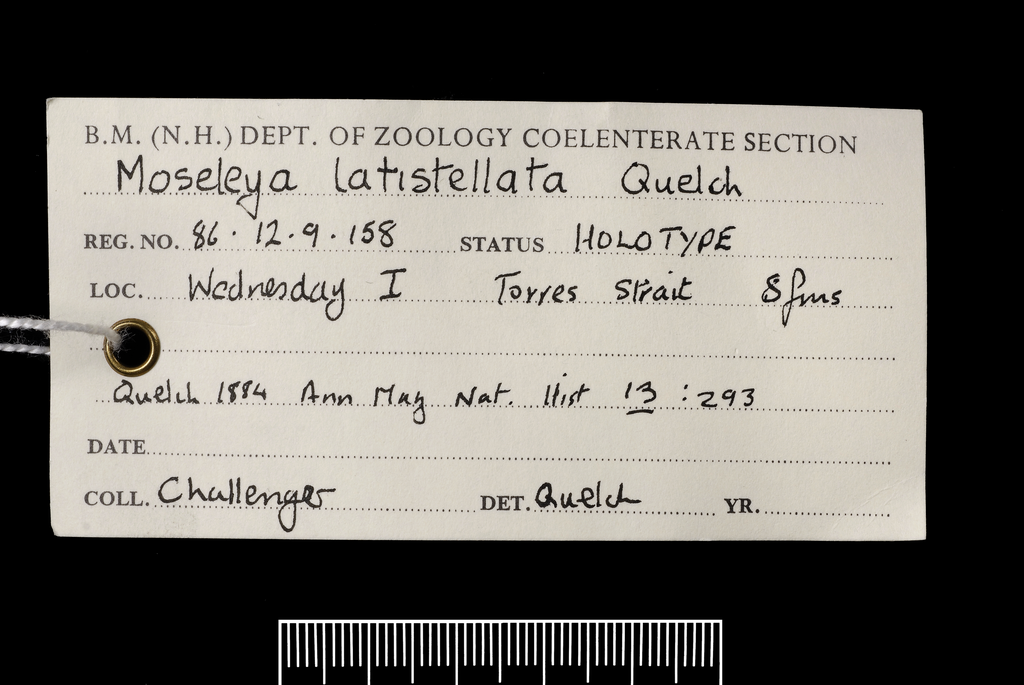 B.M. (N.H.) DEPT. OF ZOOLOGY COELENTERATE SECTION
Moseleya latistellata Quelch
REG. NO. 86 . 12 . 9 . 158 STATUS HOLOTYPE
LOC. Wednesday I Torres Strait 8 fms
Quelch 1884 Ann Mag Nat. Hist 13 : 293
DATE
COLL. Challenger DET. Quelch YR.